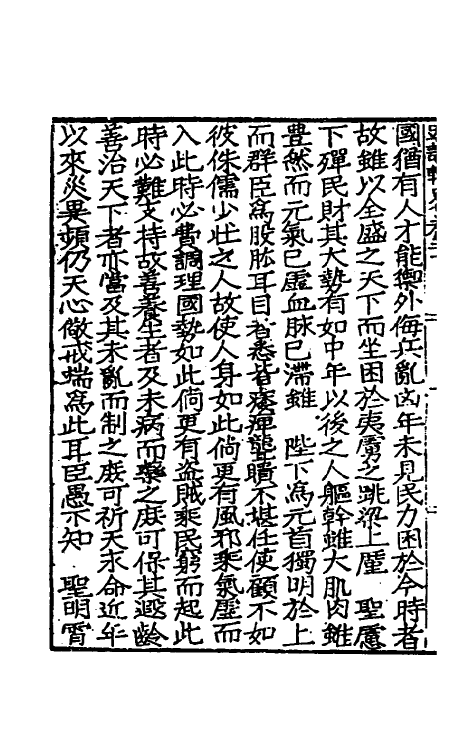 國猶有人才能禦外侮兵亂凶年未見民力困於今時者
故雖以全盛之天下而坐困於夷虜之跳梁上廑　聖慮
下殫民財其大勢有如中年以後之人軀幹雖大肌肉雖
豊然而元氣已虛血脉已滯雖　陛下爲元首獨明於上
而群臣爲股肱耳目者悉皆痿痺聾聵不堪任使顧不如
彼侏儒少壯之人故使人身如此倘更有風邪乘氣虛而
入此時必費調理國勢如此倘更有盗賊乘民窮而起此
時必難支持故善養生者及未病而藥之庶可保其遐齡
善治天下者亦當及其未亂而制之庶可祈天求命近年
以來災異頻仍天心儆戒端爲此耳臣愚不知　聖明宵